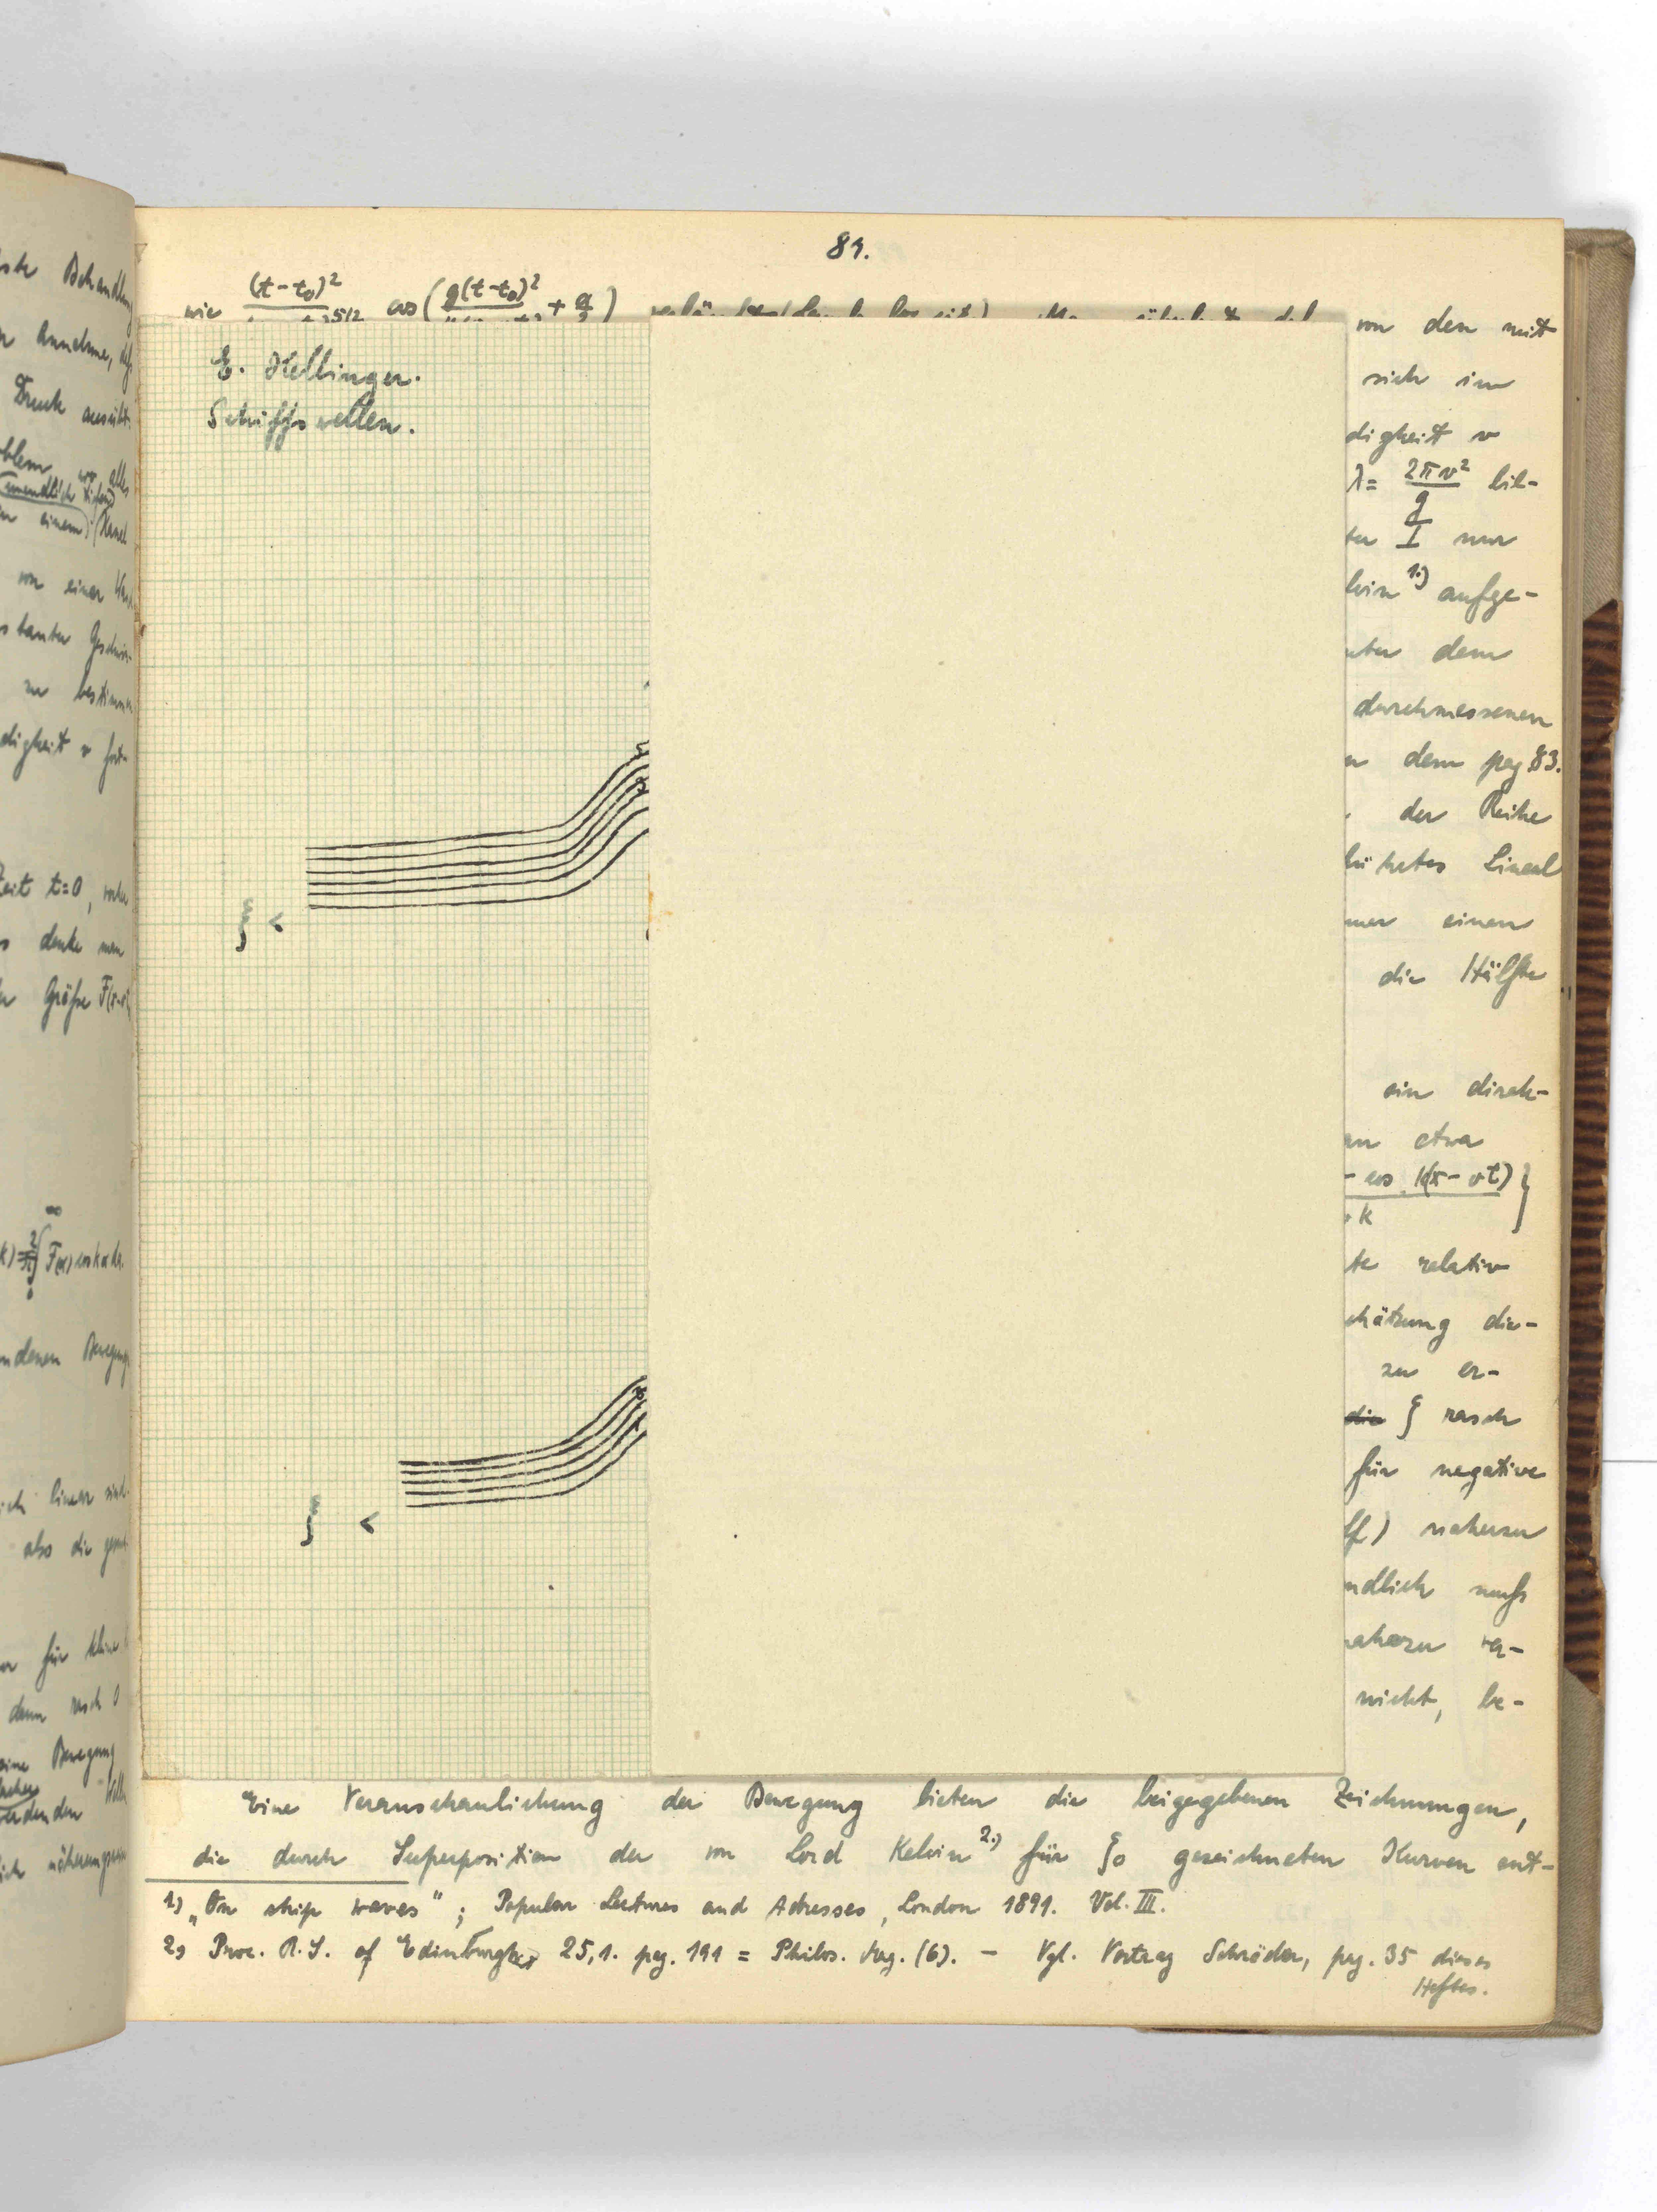 84.
wie (t-t₀)² cos(g(t-t₀)² + α)
von den mit
E. Hellinger.
Schiffswellen.
sich im
digkeit v
λ = 2πv²/g bil-
ter I nur
lvin ¹⁾ aufge-
nter dem
durchmessenen
n dem pag. 83.
der Reihe
Lineal
mer einen
die Hälfte
ζ <
ein direk-
an etwa
- cos k(x-vt) }
k
te relativ
chätzung die-
zu er-
ζ rasch
für negative
ff) nahezu
ndlich muß
nahezu ver-
nicht, be-
ζ <
Eine Veranschaulichung der Bewegung bieten die beigegebenen Zeichnungen,
die durch Superposition der von Lord Kelvin ²⁾ für ζ₀ gezeichneten Kurven ent-
1) „On ship waves"; Popular Lectures and Adresses, London 1891. Vol. III.
2) Proc. R. S. of Edinburgh 25,1. pag. 191 = Philos. Mag. (6). – Vgl. Vortrag Schröder, pag. 35 dieses
Heftes.
ste Behandlung
n Annahme, daß
Druck ausübt.
oblem, wo alles
unendlich tiefen
in einem Kanal
von einer
stanter Geschwin-
zu bestimmen
digkeit v fort-
Zeit t=0,
s denke man
r Größe F(x-
k) = 2/π ∫ F(α) cos kα dα.
ndenen Bewegung
ich linear sind
also die
für kleine
dann rasch 0
eine Bewegung
werdenden